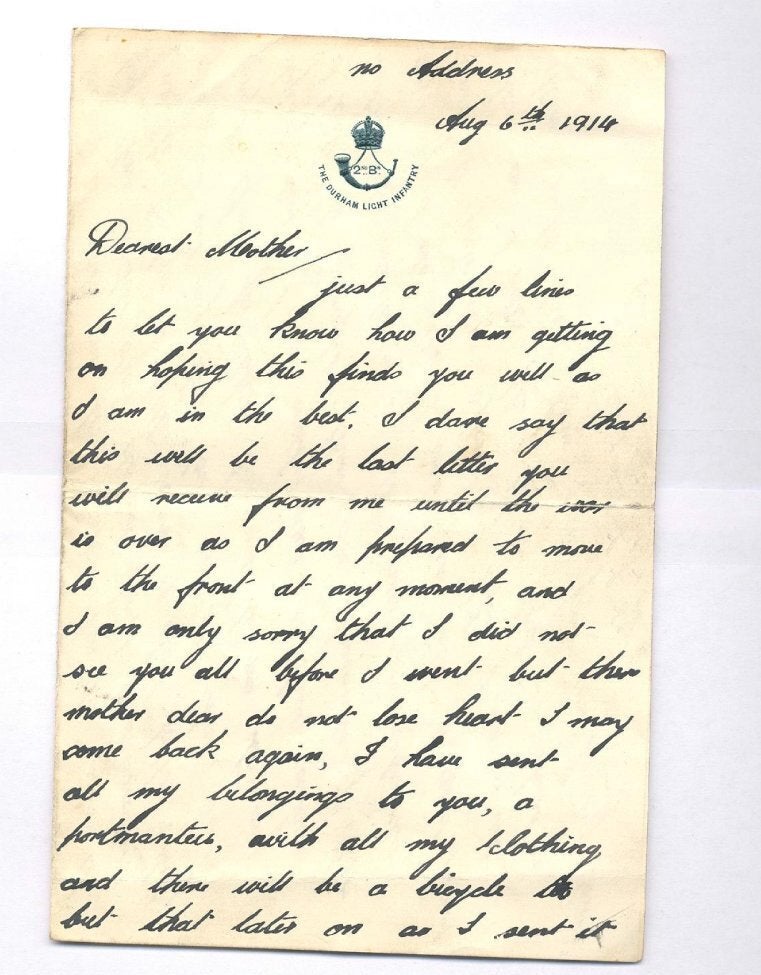 no Address
Aug 6th 1914
2ND Bn
THE DURHAM LIGHT INFANTRY
Dearest Mother
just a few lines
to let you know how I am getting
on hoping this finds you well as
I am in the best. I dare say that
this will be the last letter you
will receive from me until the war
is over as I am prepared to move
to the front at any moment, and
I am only sorry that I did not
see you all before I went but then
mother dear do not lose heart I may
come back again, I have sent
all my belongings to you, a
portmanteu, with all my clothing
and there will be a bicycle
but that later on as I sent it